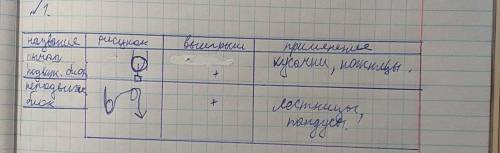 √1.
название рисунок выигрыш применение
рычаг
подвиж. блок + кусачки, ножницы.
неподвижн
блок + лестницы,
пандусы.